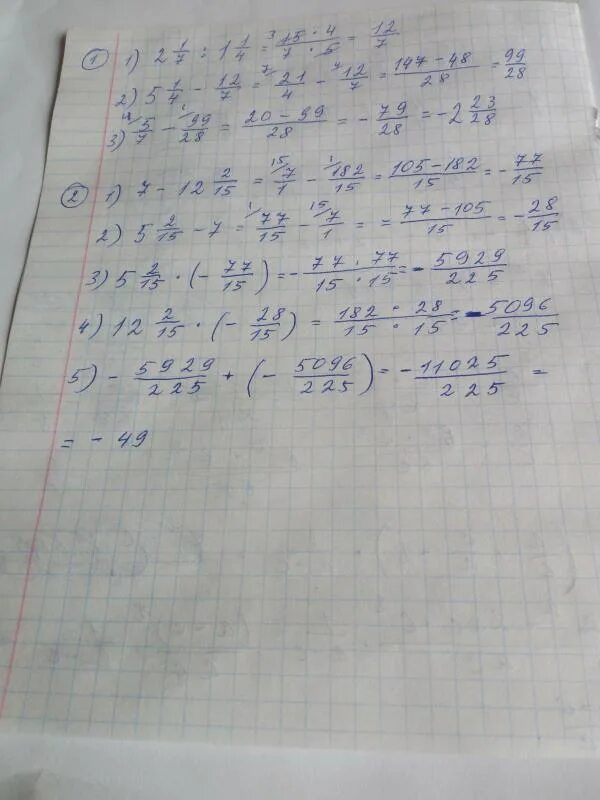 ① 1) 2 1/7 : 1 1/4 = 15 · 4 / 7 · 5 = 12/7
2) 5 1/4 - 12/7 = 21/4 - 12/7 = 147 - 48 / 28 = 99/28
3) 5/7 - 99/28 = 20 - 99 / 28 = - 79/28 = -2 23/28
② 1) 7 - 12 2/15 = 7/1 - 182/15 = 105 - 182 / 15 = - 77/15
2) 5 2/15 - 7 = 77/15 - 7/1 = = 77 - 105 / 15 = - 28/15
3) 5 2/15 · (- 77/15) = - 77 · 77 / 15 · 15 = - 5929/225
4) 12 2/15 · (- 28/15) = 182 · 28 / 15 · 15 = - 5096/225
5) - 5929/225 + (- 5096/225) = - 11025/225 =
= - 49